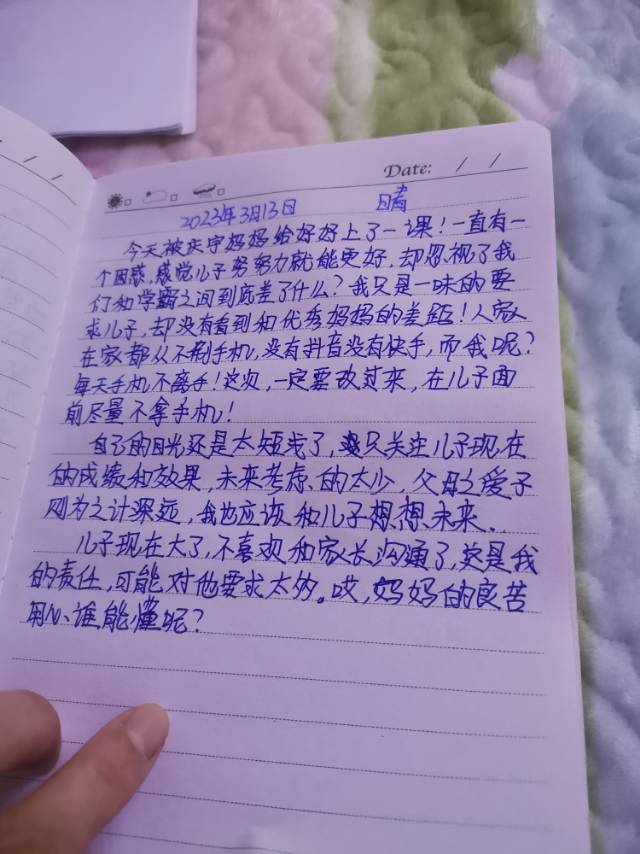 Date: / /
2023年3月13日 晴
今天被庆宇妈妈给好好上了一课!一直有一
个困惑,感觉儿子努努力就能更好,却忽视了我
们和学霸之间到底差了什么?我只是一味的要
求儿子,却没有看到和优秀妈妈的差距!人家
在家都从不刷手机,没有抖音没有快手,而我呢?
每天手机不离手!这次,一定要改过来,在儿子面
前尽量不拿手机!
自己的目光还是太短浅了,只关注儿子现在
的成绩和效果,未来考虑的太少,父母之爱子
则为之计深远,我也应该和儿子想想未来.
儿子现在大了,不喜欢和家长沟通了,这是我
的责任,可能对他要求太多。哎,妈妈的良苦
用心谁能懂呢?